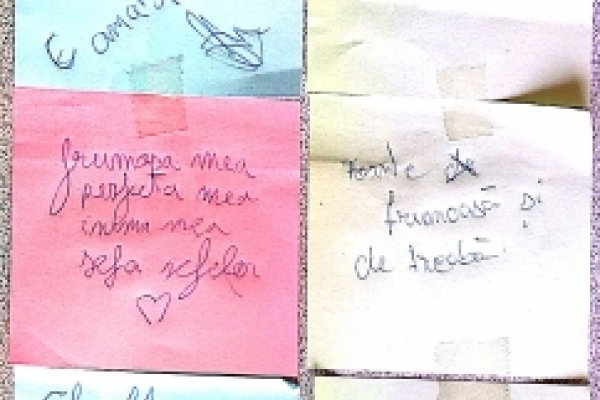 E
frumoasa mea
perfecta mea
inima mea
sefa sefelor
foarte
frumoasă și
de treabă.